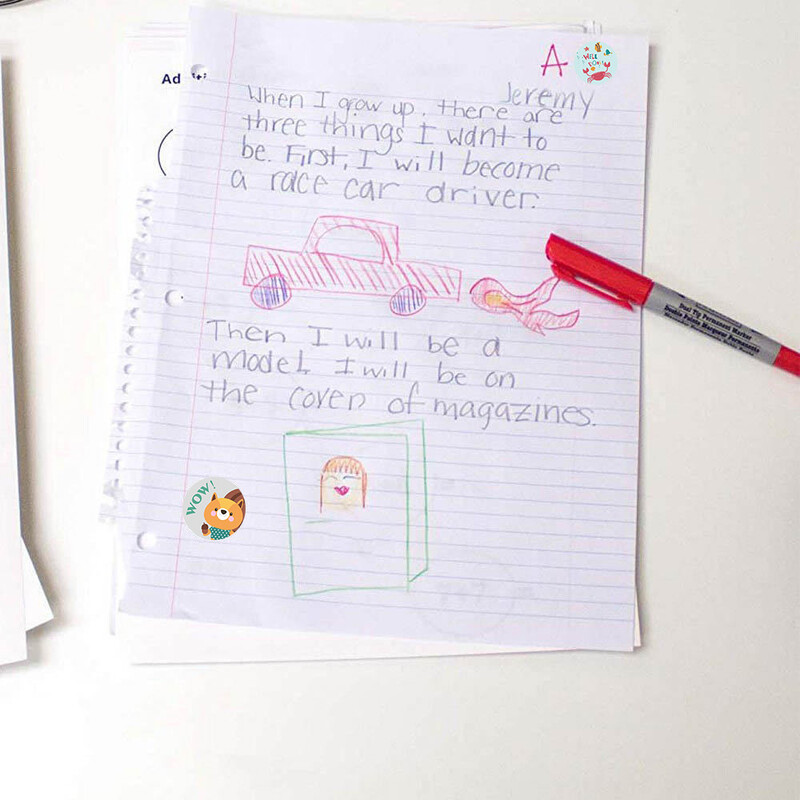 A
WELL
DONE!
Jeremy
When I grow up, there are
three things I want to
be. First, I will become
a race car driver.
Then I will be a
model. I will be on
the cover of magazines.
WOW!
Dual Tip Permanent Marker